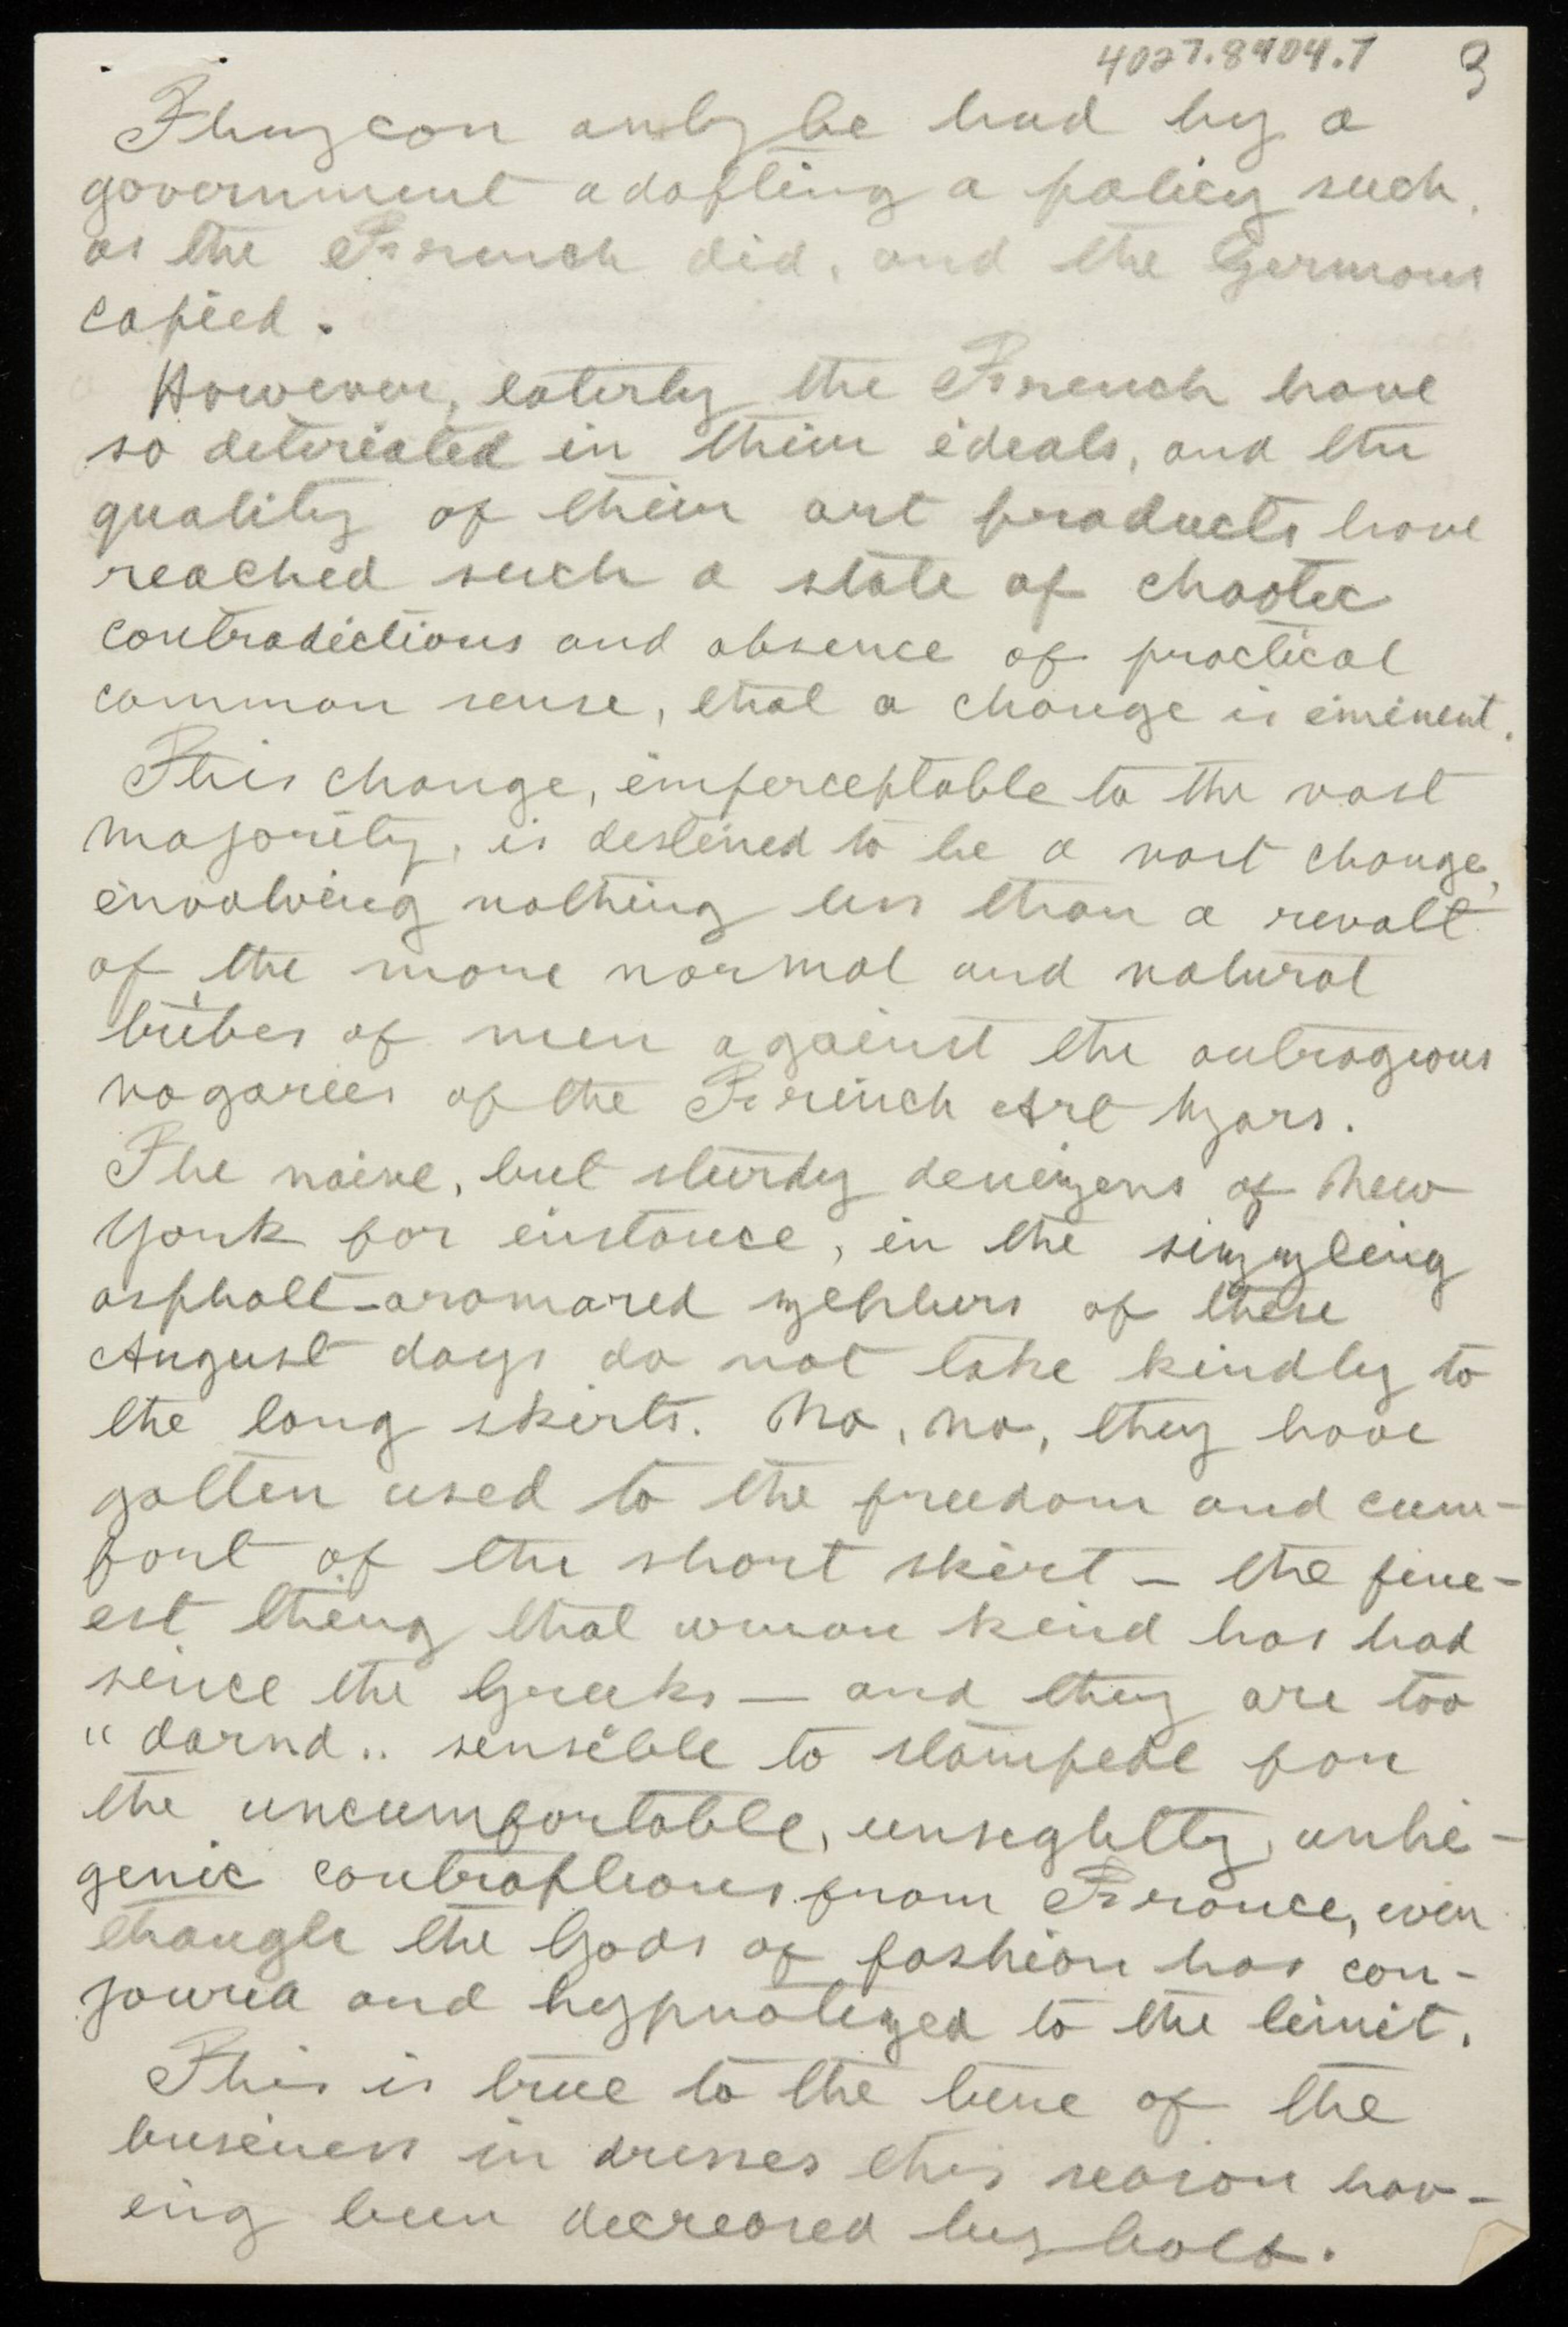 4027.8404.7 3
They can only be had by a
government adopting a policy such,
as the French did, and the Germans
copied.
However, laterly the French have
so deteriated in their ideals, and the
quality of their art products have
reached such a state of chaotic
contradictions and absence of practical
common sense, that a change is eminent.
This change, imperceptable to the vast
majority, is destined to be a vast change,
involving nothing less than a revolt
of the more normal and natural
tribes of men against the outragious
vagaries of the French Art Tzars.
The naive, but sturdy denizens of New
York for instance, in the sizzling
asphalt-aromared zephers of these
August days do not take kindly to
the long skirts. No, no, they have
gotten used to the freedom and cum-
fort of the short skirt — the fine-
est thing that woman kind has had
since the Greeks — and they are too
"darnd" sensible to stampede for
the uncumfortable, unsightly, unhi-
genic contraptions from France, even
though the Gods of fashion has con-
joured and hypnotized to the limit.
This is true to the tune of the
business in dresses this season hav-
ing been decreased by half.